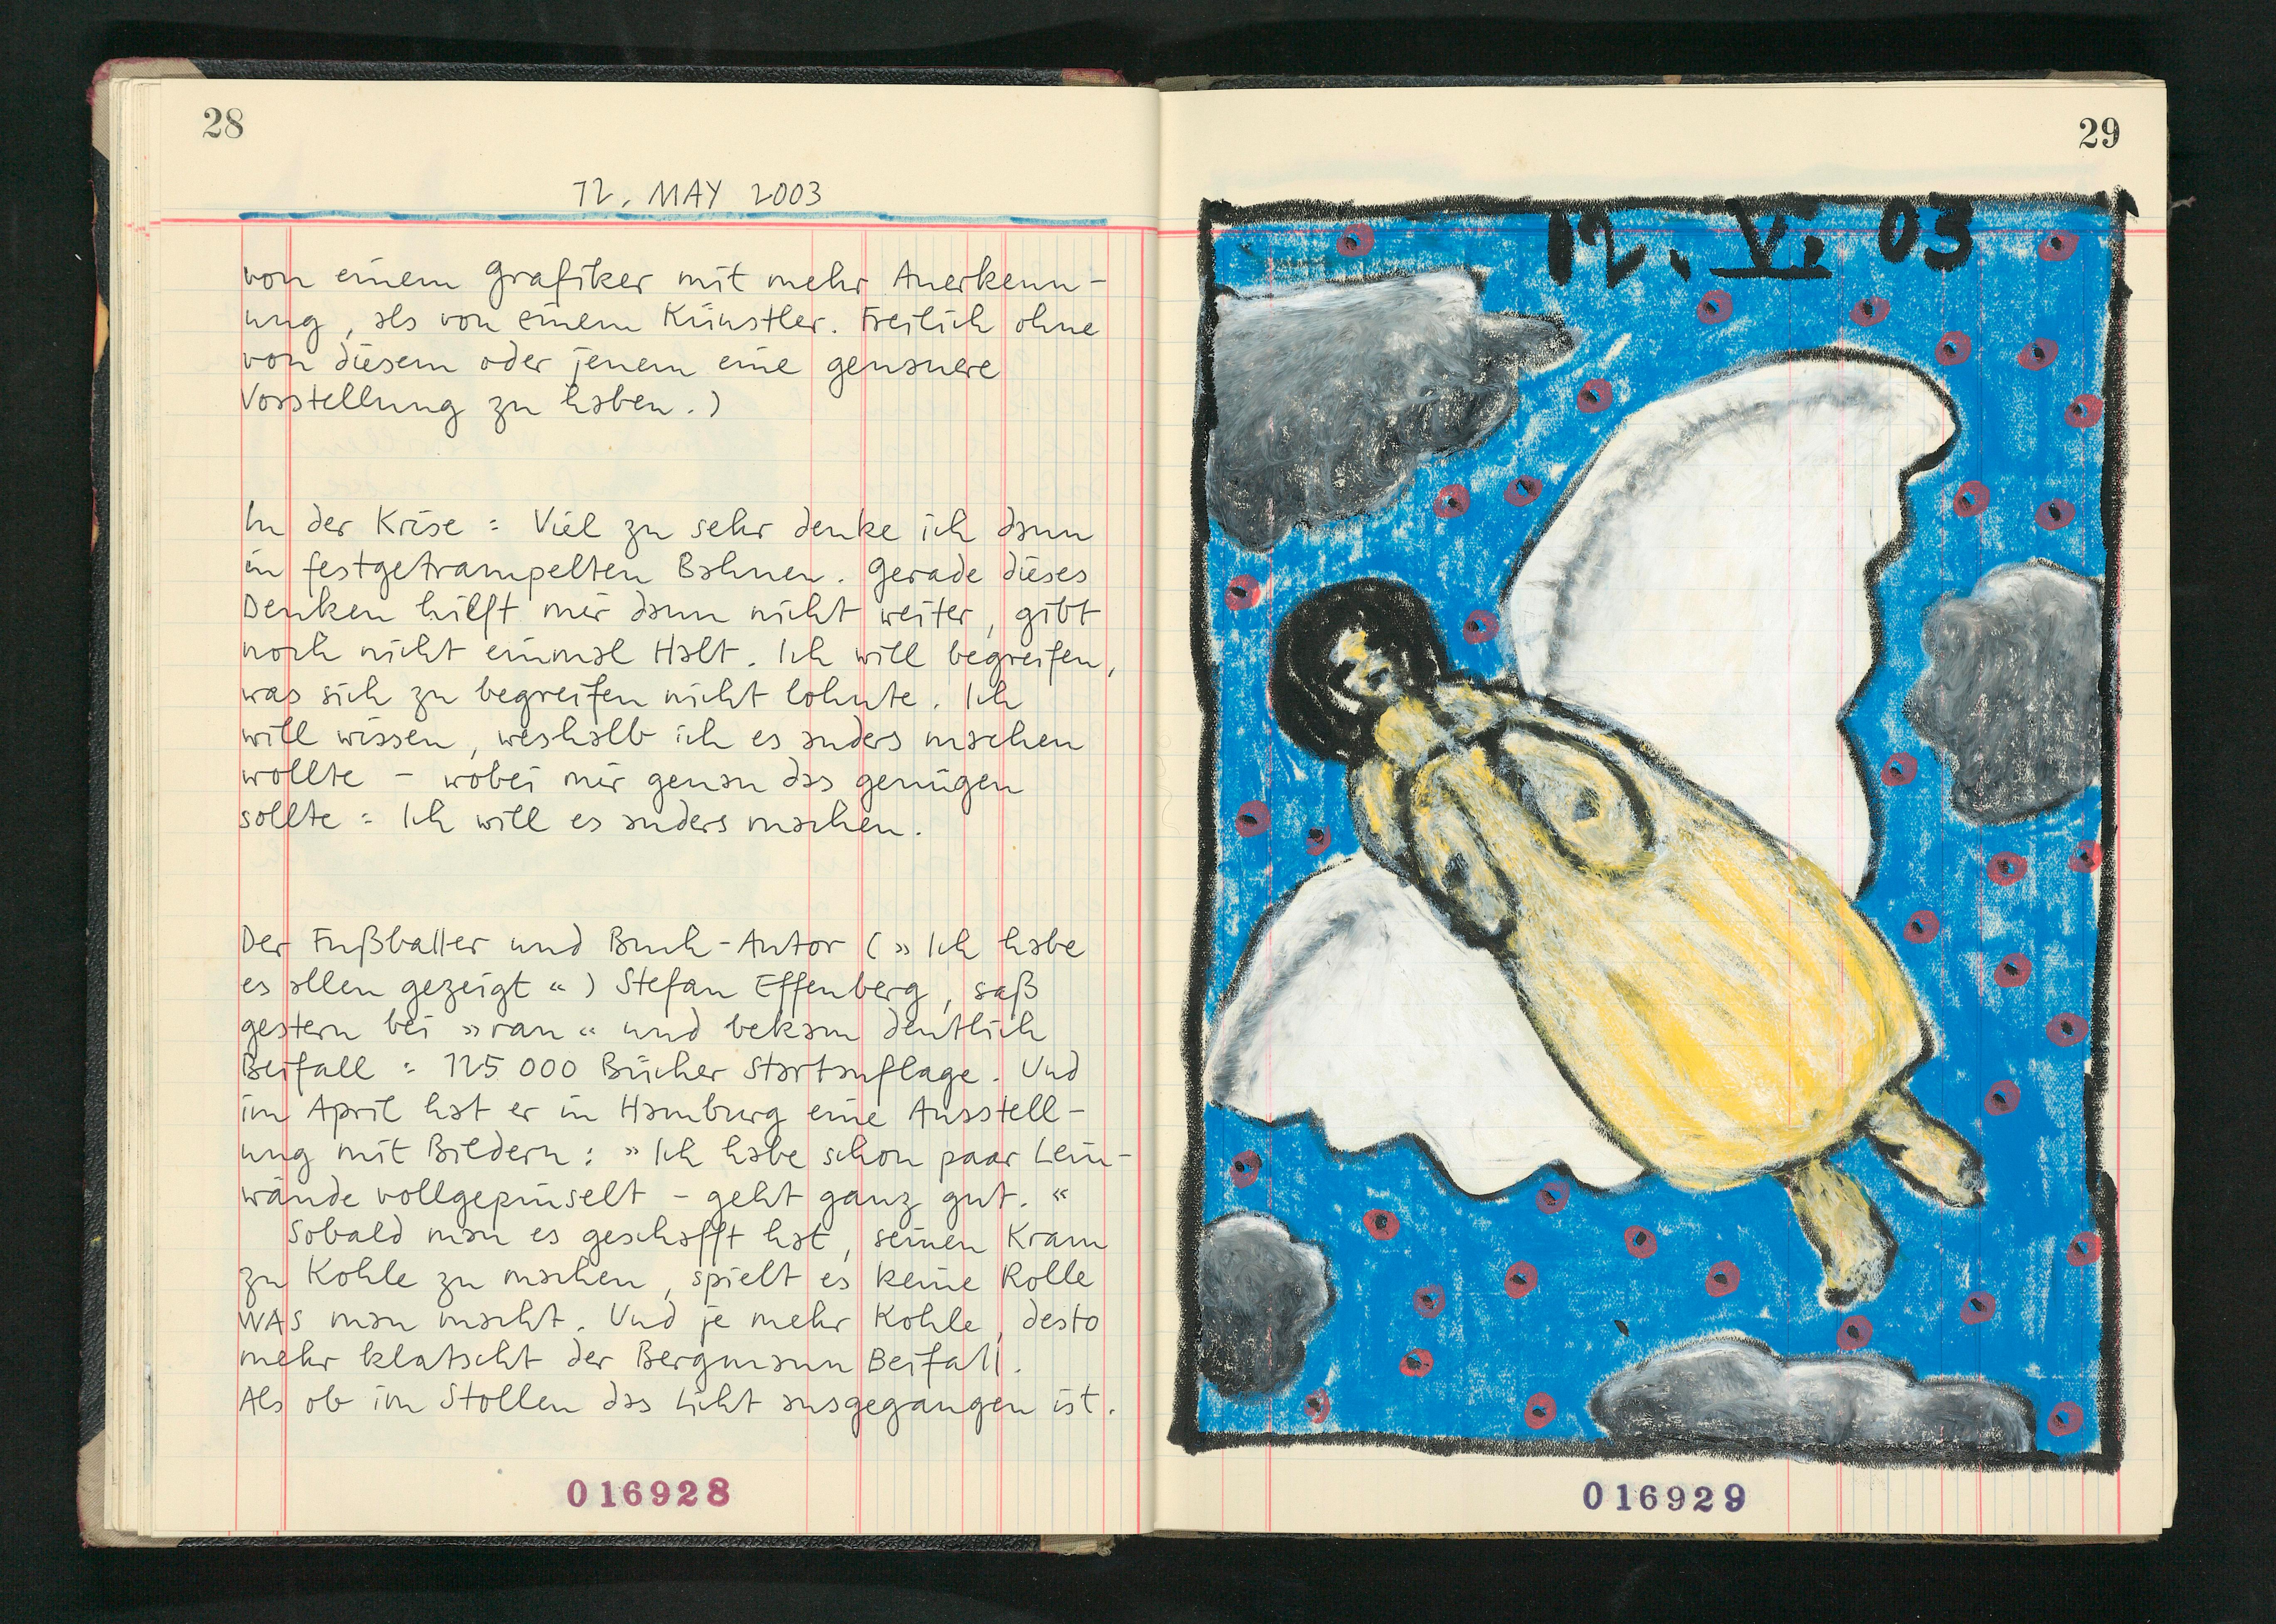 28
12. MAY 2003
von einem Grafiker mit mehr Anerkenn-
ung, als von einem Künstler. Freilich ohne
von diesem oder jenem eine genauere
Vorstellung zu haben.)
In der Krise: Viel zu sehr denke ich dann
in festgetrampelten Bahnen. Gerade dieses
Denken hilft mir dann nicht weiter, gibt
noch nicht einmal Halt. Ich will begreifen,
was sich zu begreifen nicht lohnte. Ich
will wissen, weshalb ich es anders machen
wollte - wobei mir genau das genügen
sollte: Ich will es anders machen.
Der Fußballer und Buch-Autor (»Ich habe
es allen gezeigt«) Stefan Effenberg, saß
gestern bei »ran« und bekam deutlich
Beifall: 125 000 Bücher Startauflage. Und
im April hat er in Hamburg eine Ausstell-
ung mit Bildern: »Ich habe schon paar Lein-
wände vollgepinselt - geht ganz gut.«
Sobald man es geschafft hat, seinen Kram
zu Kohle zu machen, spielt es keine Rolle
WAS man macht. Und je mehr Kohle, desto
mehr klatscht der Bergmann Beifall.
Als ob im Stollen das Licht ausgegangen ist.
016928
29
12. V. 03
016929